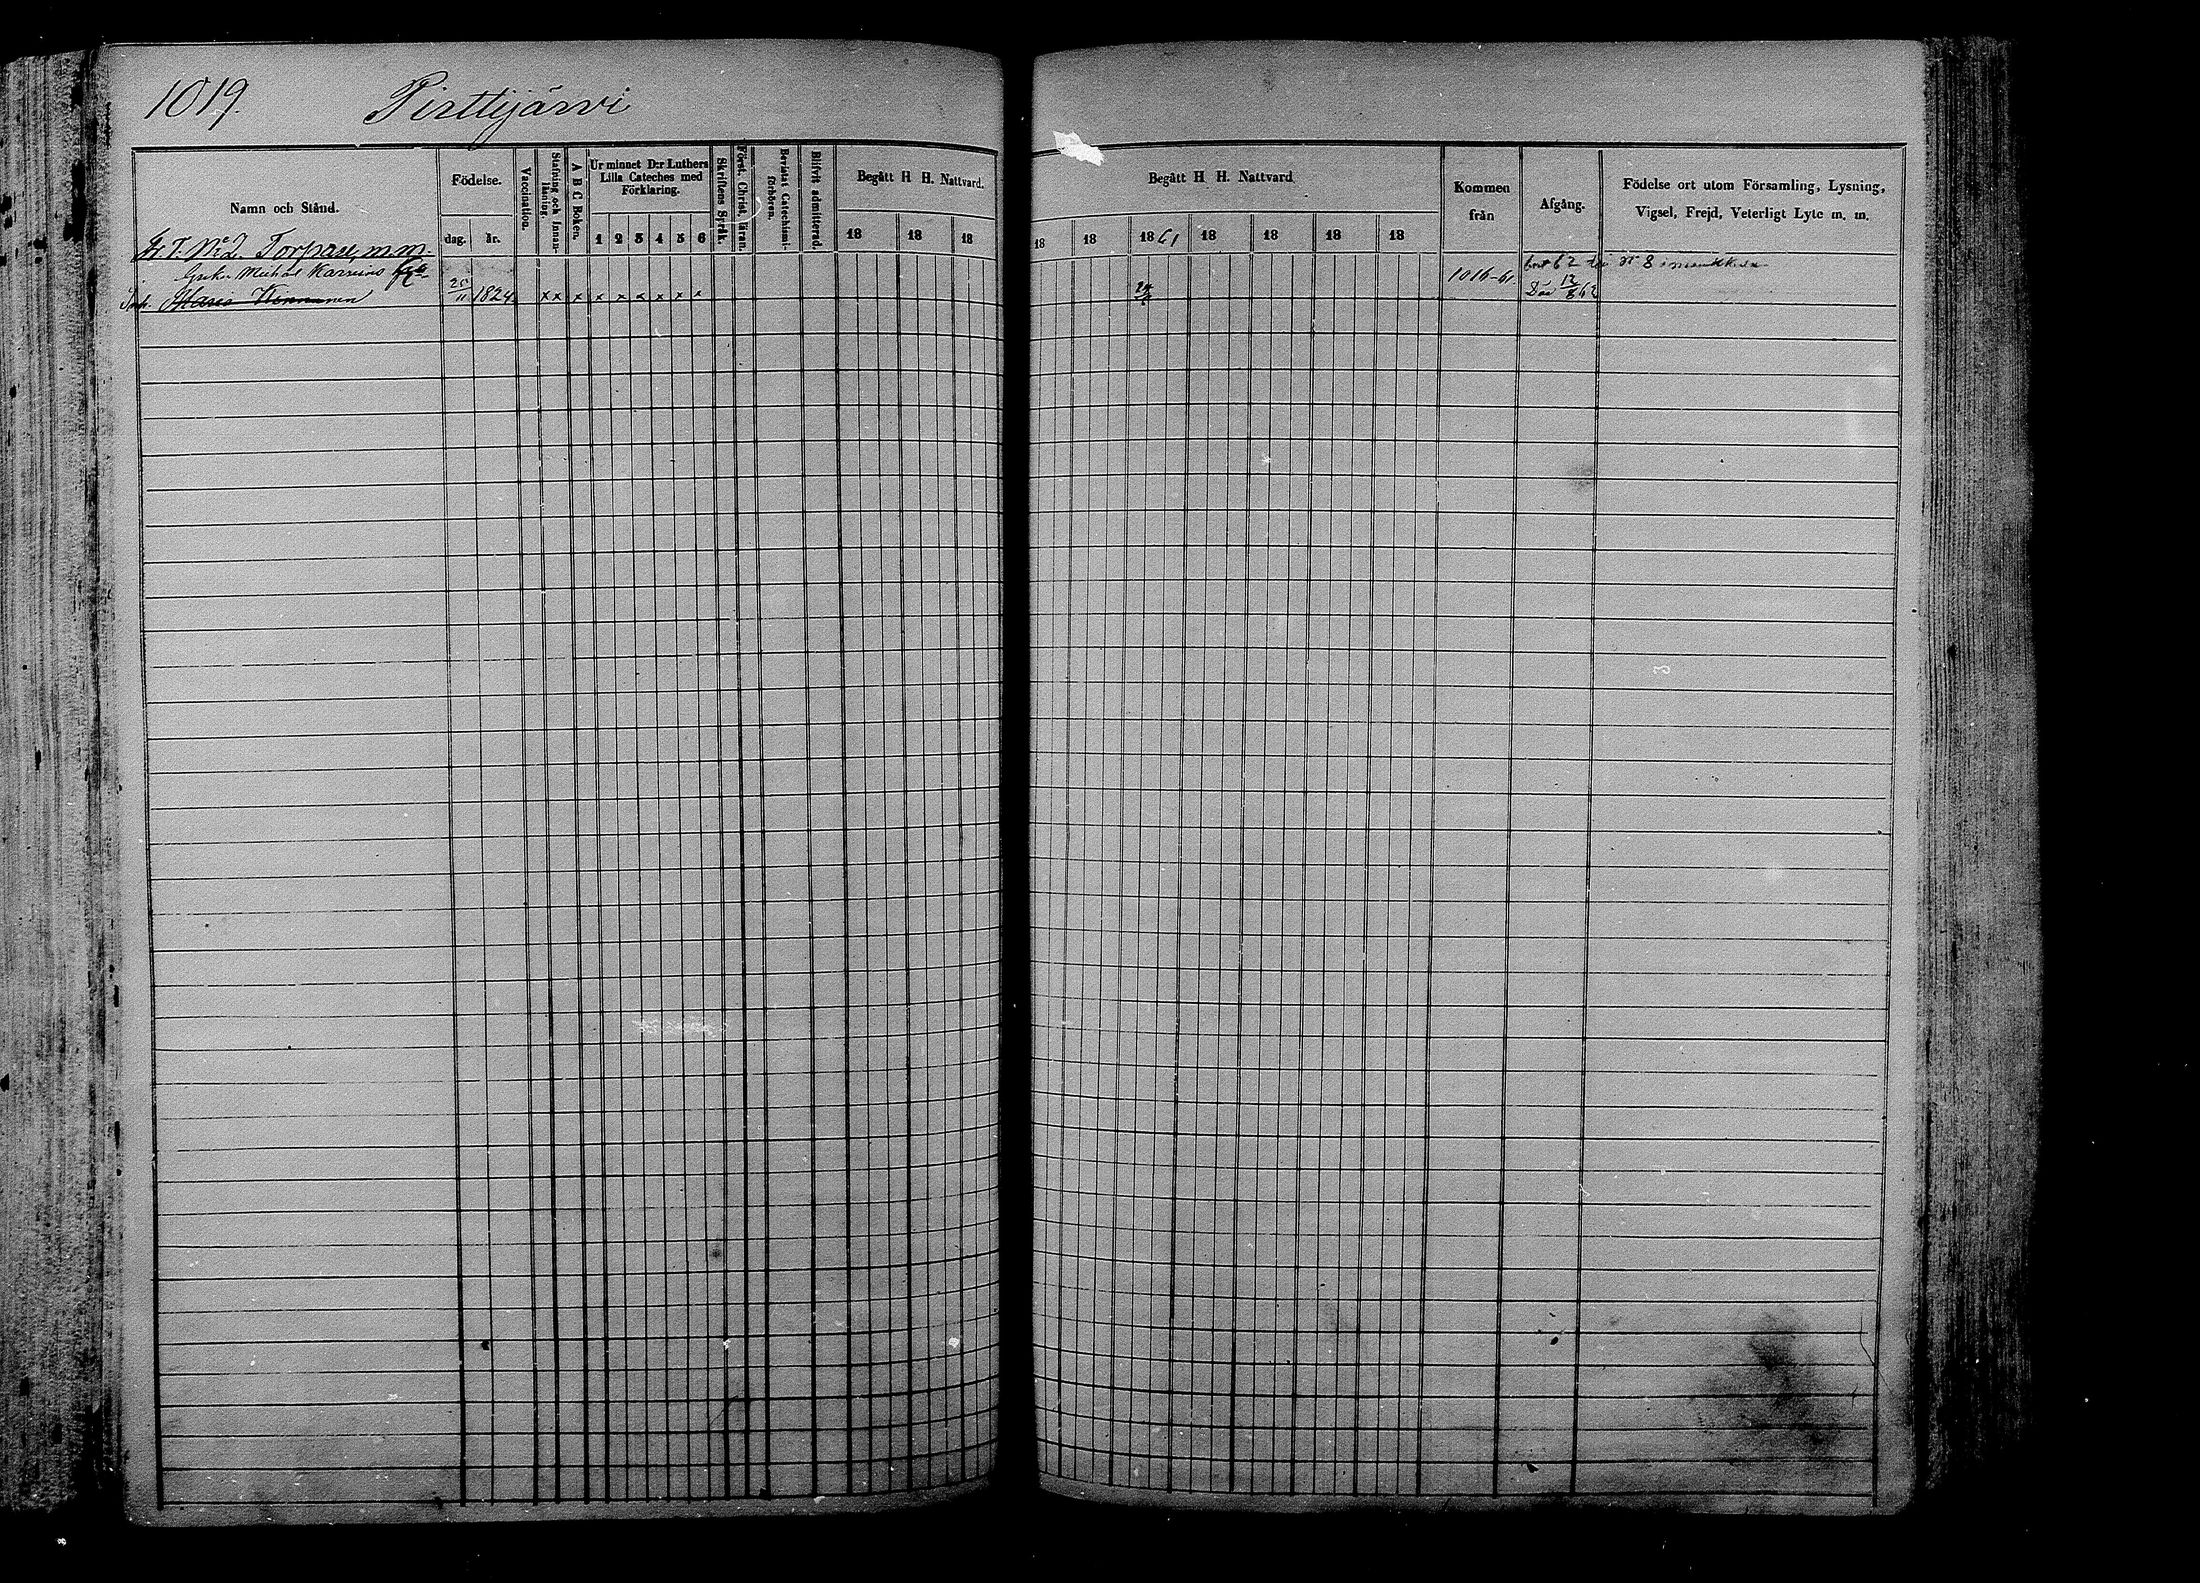 1019.
Pirttijärvi
Namn och Stånd.
Födelse.
dag.
år.
Vaccination.
Stafning och Innanläsning.
A B C Boken.
Ur minnet D:r Luthers
Lilla Cateches med
Förklaring.
1 2 3 4 5 6
Skriftens Språk.
Först. Christ. läran.
Bevistat Catechismiförhören.
Blifvit admitterad.
Begått H H. Nattvard.
18 18 18
Begått H H. Nattvard
18 18 1861 18 18 18 18
Kommen
från
Afgång.
Födelse ort utom Församling, Lysning,
Vigsel, Frejd, Veterligt Lyte m. m.
No 2. Torpare, m.m.
Michel 1016-61. 62 No 8
Maria Kinnunen 25/11 1824 x x x x x x x x x Död 12/8 62